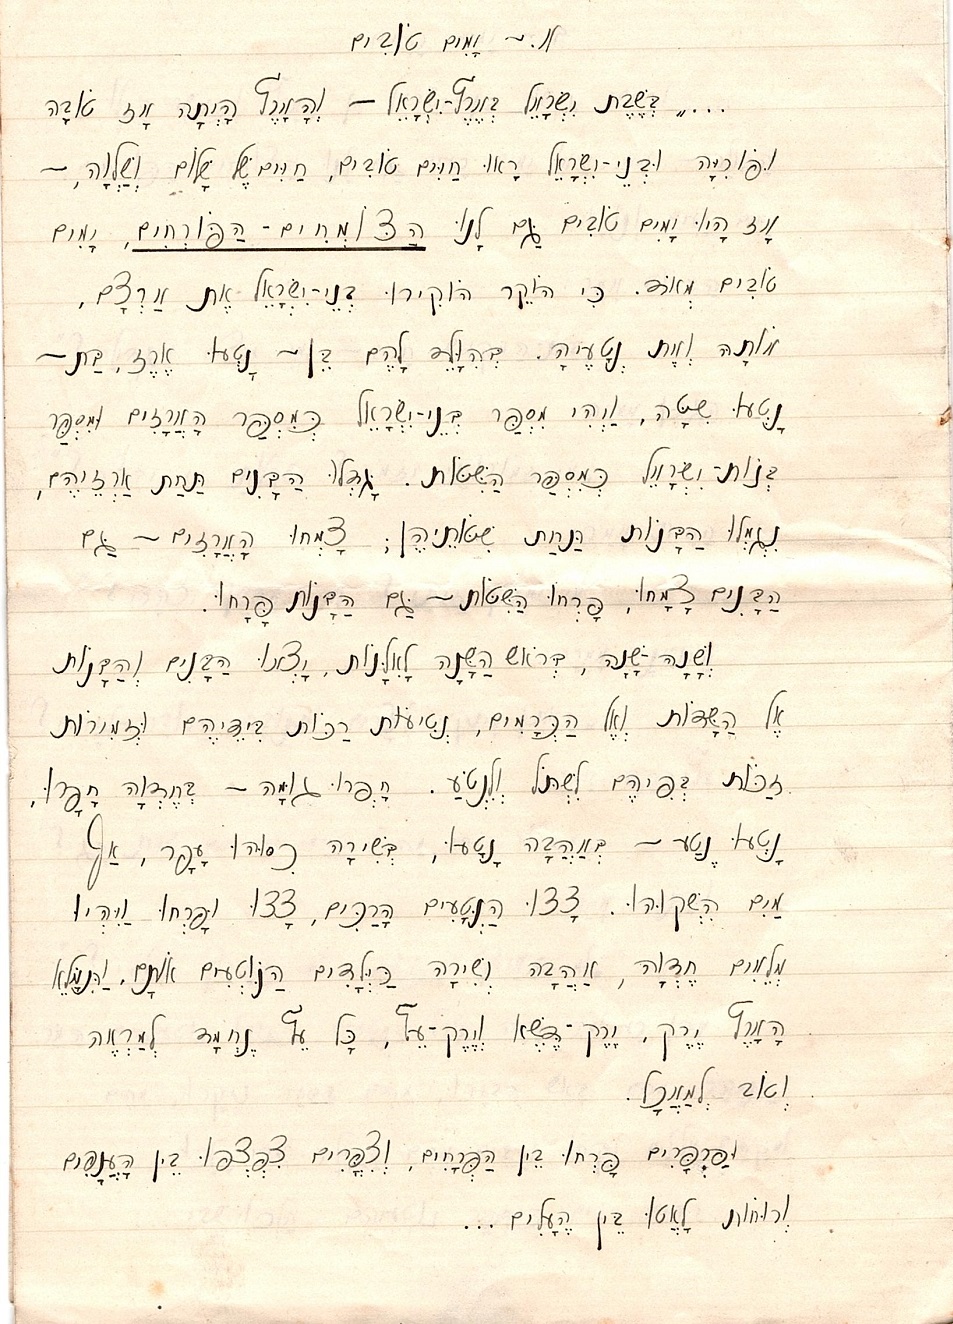 א. ~ יָמִים טוֹבִים
..." בְּשֶׁבֶת יִשְׂרָאֵל בְּאֶרֶץ-יִשְׂרָאֵל – וְהָאָרֶץ הָיְתָה אָז טוֹבָה
וּפוֹרִיָּה וּבְנֵי-יִשְׂרָאֵל רָאוּ חַיִּים טוֹבִים, חַיִּים שֶׁל שָׁלוֹם וְשַׁלְוָה, –
אָז הָיוּ יָמִים טוֹבִים גַּם לָנוּ הַצּוֹמְחִים - הַפּוֹרְחִים, יָמִים
טוֹבִים מְאֹד. כִּי הוֹקֵר הוֹקִירוּ בְּנֵי-יִשְׂרָאֵל אֶת אַרְצָם,
אוֹתָהּ וְאֶת נְטָעֶיהָ. בְּהִוָּלֵד לָהֶם בֵּן ~ נָטְעוּ אֶרֶז, בַּת ~
נָטְעוּ שִׁטָּה, וַיְהִי מִסְפַּר בְּנֵי-יִשְׂרָאֵל כְּמִסְפַּר הָאֲרָזִים וּמִסְפַּר
בְּנוֹת-יִשְׂרָאֵל כְּמִסְפַּר הַשִּׁטּוֹת. גָּדְלוּ הַבָּנִים תַּחַת אַרְזֵיהֶם,
נִגְמְלוּ הַבָּנוֹת תַּחַת שִׁטּוֹתֵיהֶן; צָמְחוּ הָאֲרָזִים ~ גַּם
הַבָּנִים צָמָחוּ, פָּרְחוּ הַשִּׁטּוֹת ~ גַּם הַבָּנוֹת פָּרָחוּ.
וְשָׁנָה-שָׁנָה, בְּרֹאשׁ הַשָּׁנָה לָאִילָנוֹת, יָצְאוּ הַבָּנִים וְהַבָּנוֹת
אֶל הַשָּׂדוֹת וְאֶל הַכְּרָמִים, נְטִיעוֹת רַכּוֹת בִּידֵיהֶם וּזְמִירוֹת
זַכּוֹת בְּפִיהֶם לִשְׁתֹּל וְלִנְטֹעַ. חָפְרוּ גוּמָה ~ בְּחֶדְוָה חָפְרוּ,
נָטְעוּ נֶטַע ~ בְּאַהֲבָה נָטְעוּ, בְּשִׁירָה כִּסּוּהוּ עָפָר, אַף
מַיִם הִשְׁקוּהוּ. צָצוּ הַנְּטָעִים הָרַכִּים, צָצוּ וּפָרְחוּ וַיִּהְיוּ
מְלֵאִים חֶדְוָה, אַהֲבָה וְשִׁירָה כַּיְלָדִים הַנּוֹטְעִים אוֹתָם. וַתִּמָּלֵא
הָאָרֶץ יֶרֶק, יֶרֶק-דֶּשֶׁא וְיֶרֶק-עֵץ, כָּל עֵץ נֶחְמָד לְמַרְאֶה
וְטוֹב לְמַאֲכָל.
וּפַרְפָּרִים פָּרְחוּ בֵּין הַפְּרָחִים, וְצִפֳּרִים צִפְצְפוּ בֵּין הָעֲנָפִים
וְרוּחוֹת לָאֲטוּ בֵּין הֶעָלִים ...